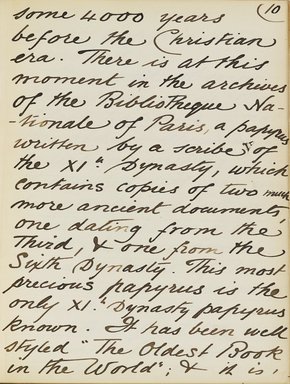 (10
some 4000 years
before the Christian
era. There is at this
moment in the archives
of the Bibliotheque Na-
-tionale of Paris, a papyrus
written by a scribe of
the XI.th Dynasty, which
contains copies of two much
more ancient documents,
one dating from the
Third, & one from the
Sixth Dynasty. This most
precious papyrus is the
only XI.th Dynasty papyrus
known. It has been well
styled "The Oldest Book
in the World"; & it is,